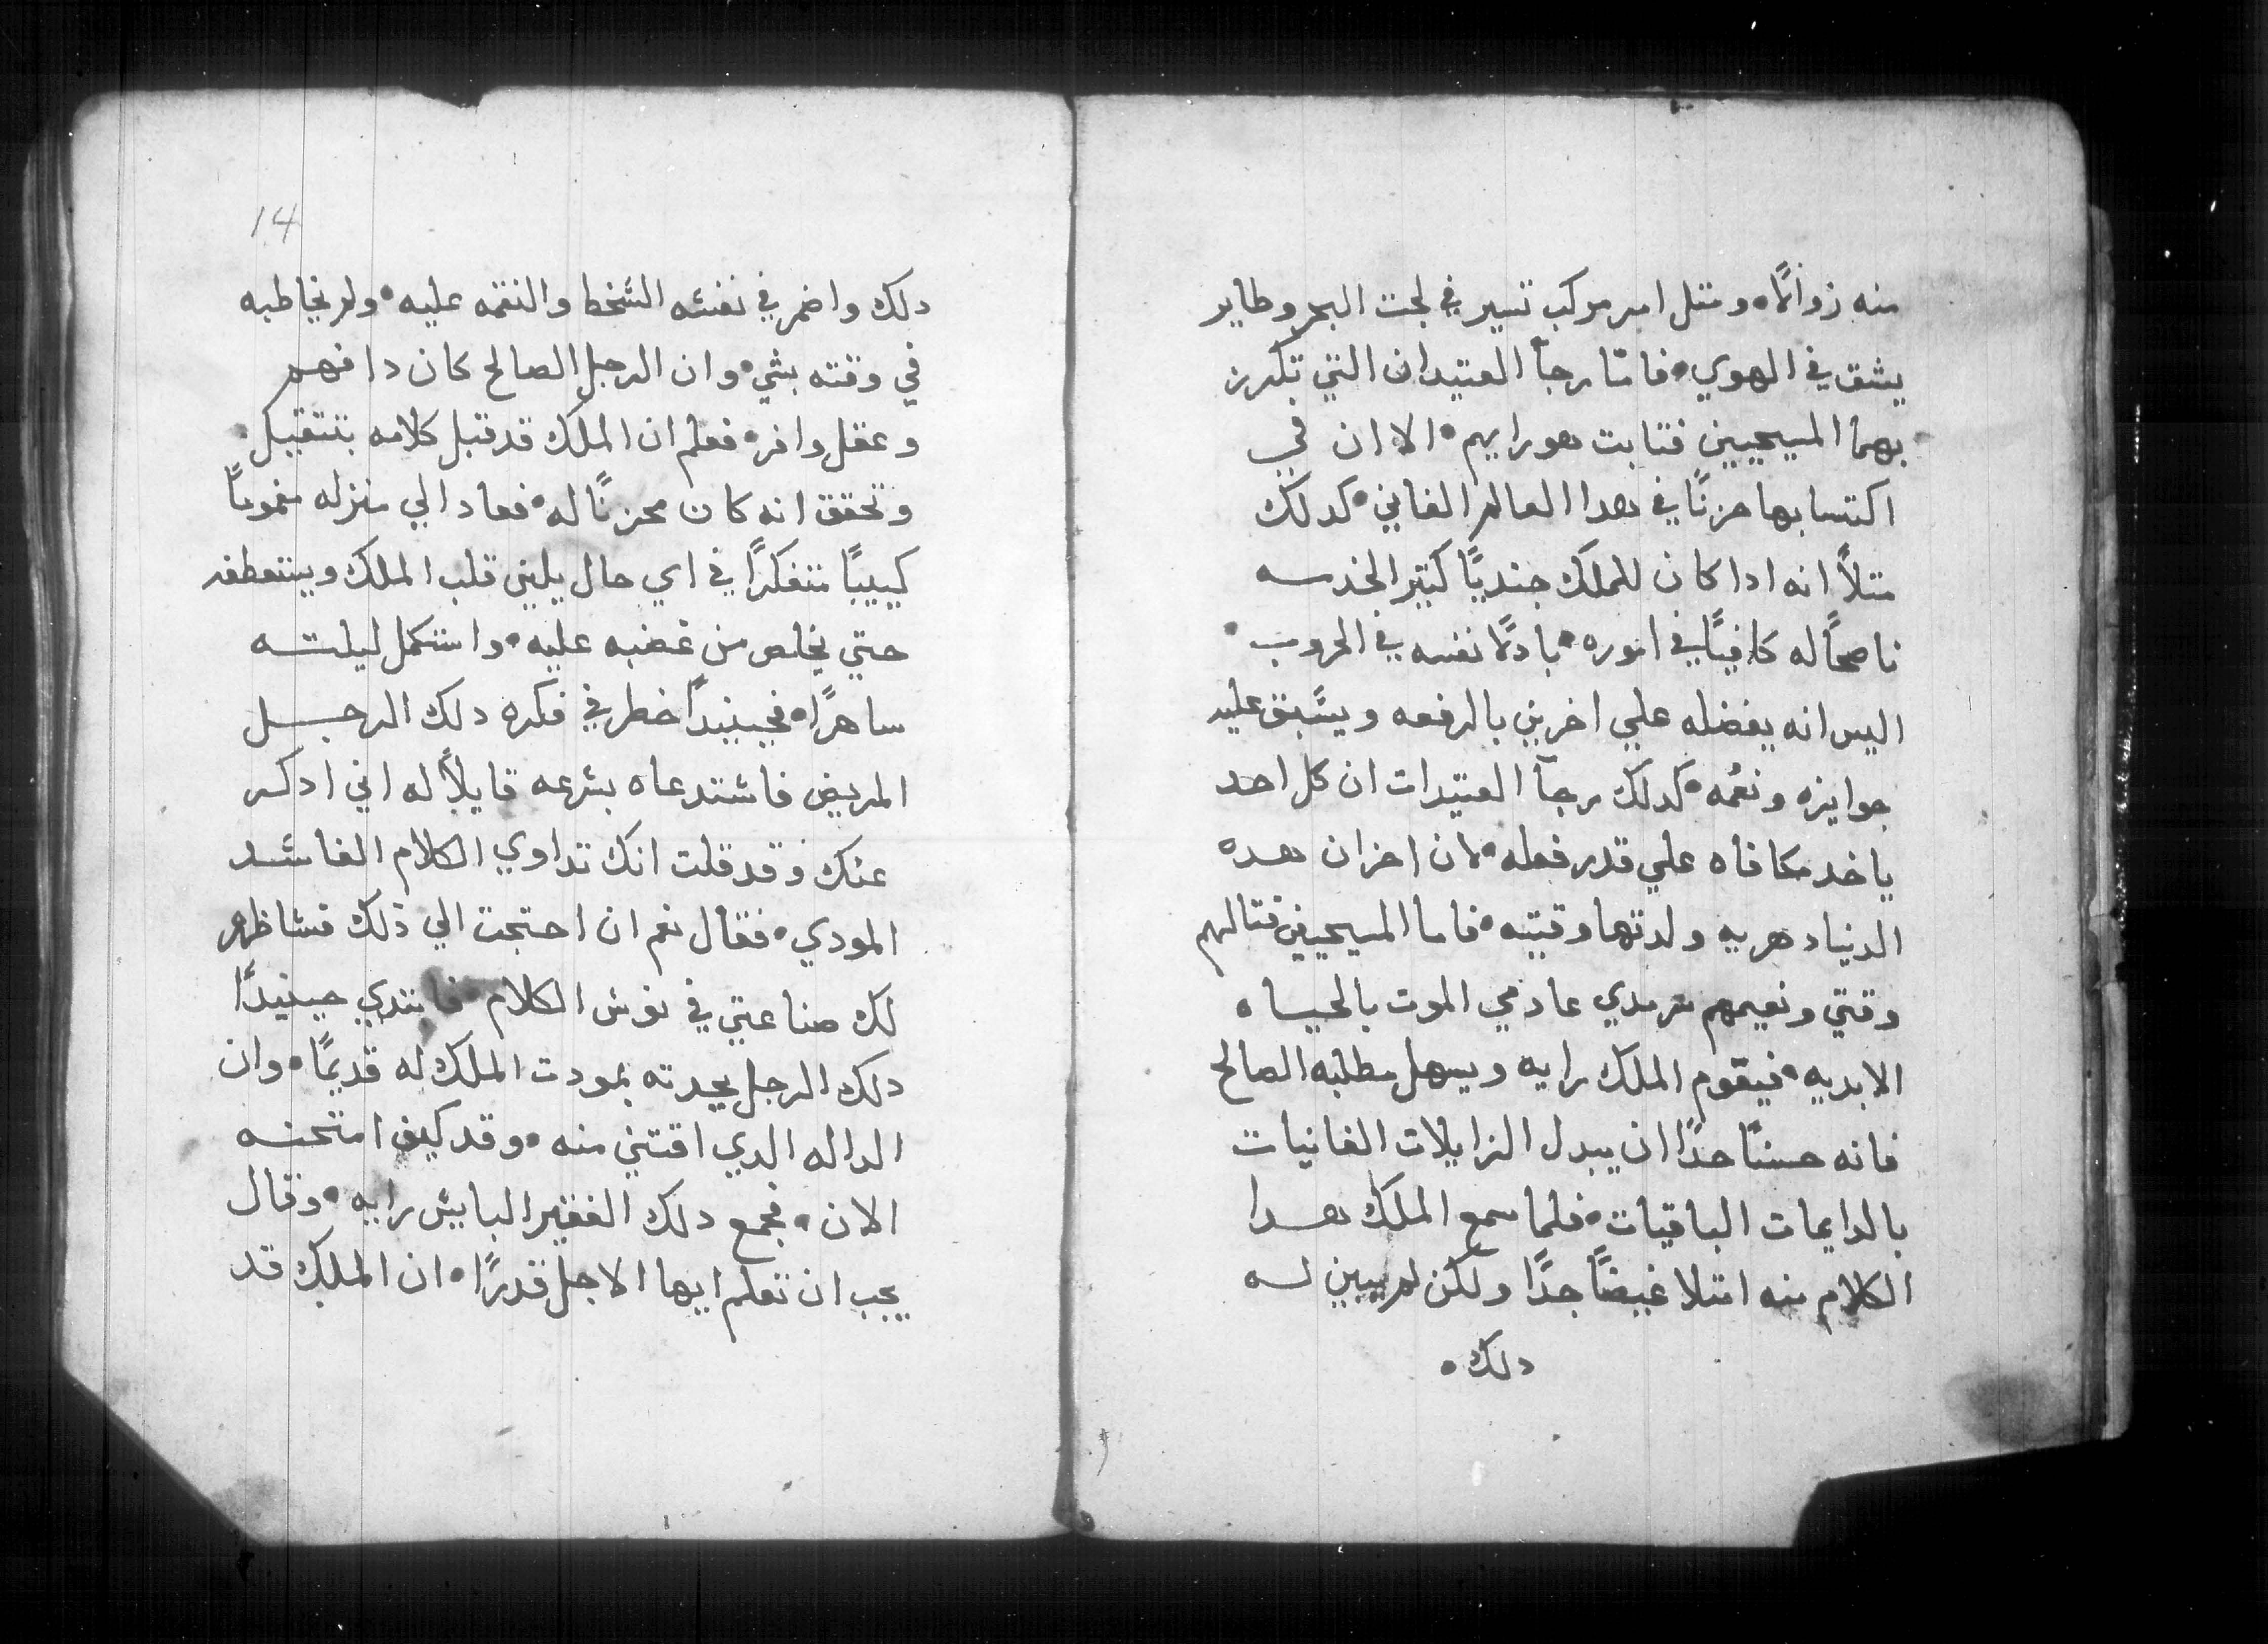 منه زوالًا ومتل اسر مركب تسير في لجت البحر وطاير
يشق في الهوي فامّا رجآ العتيدان التي تكرز
بهما المسيحيين فتابت هو رايهم الا ان في
اكتسابها حزنًا في هدا العالم الفاني كدلك
متلاً انه ادا كان للملك جنديًا كتير الخدمه
ناصحًا له كافيًا في اموره بادلًا نفسه في الحروب
اليس انه يفضله علي اخرين بالرفعه ويسّبق عليه
جوايزه ونعُمه كدلك رجآ العتيدات ان كل احد
ياخد مكافاه علي قدر فعله لان احزان هده
الدنيا دهريه ولدتها وقتيه فاما المسيحيين قتالهم
وقتي ونعيمهم سرمدي عادمي الموت بالحياه
الابديه فيقوم الملك رايه ويسهل مطلبه الصالح
فانه حسنًا جدًا ان يبدل الزايلات الفانيات
بالدايمات الباقيات فلما سمع الملك هدا
الكلام منه امتلا غيضًا جدًا ولكن لم يبين له
دلك
14
دلك واضمر في نفسه السخط والنقمه عليه ولم يخاطبه
في وقته بشي وان الرجل الصالح كان دا فهم
وعقل وافر فعلم ان الملك قد قبل كلامه بتتقيل
وتحقق انه كان محزنًا له فعاد الي منزله مغمومًا
كييبًا متفكرًا في اي حال يلين قلب الملك ويستعطفه
حتي يخلص من غضبه عليه واستكمل ليلته
ساهرًا فحينيدًا خطر في فكره دلك الرجل
المريض فاستدعاه بسرعه قايلاً له اني ادكر
عنك وقد قلت انك تداوي الكلام الفاسد
المودي فقال نعم ان احتجت الي ذلك فساظهر
لك صناعتي في نوس الكلام فابتدي حينيدًا
دلك الرجل يحدته بمودت الملك له قديمًا وان
الداله الدي اقتني منه وقد كيف امتحنه
الان فجمع دلك الفقير البايس رايه وقال
يجب ان تعلم ايها الاجل قدرًا ان الملك قد